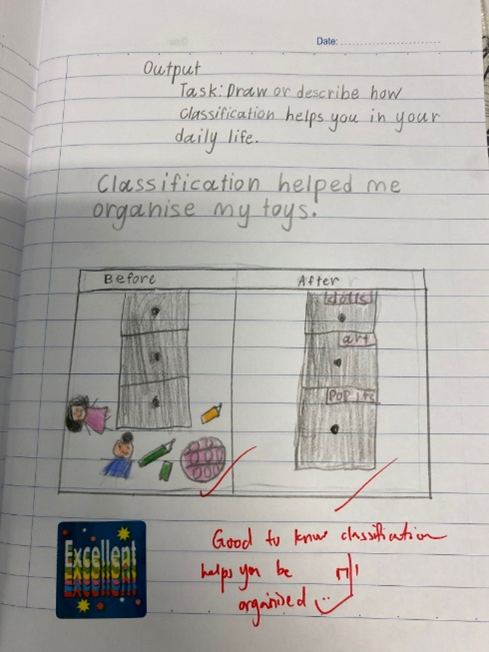 Date:
Output
Task: Draw or describe how
classification helps you in your
daily life.
Classification helped me
organise my toys.
Before
After
dolls
art
Pop its
Excellent
Good to know classification
helps you be
organised